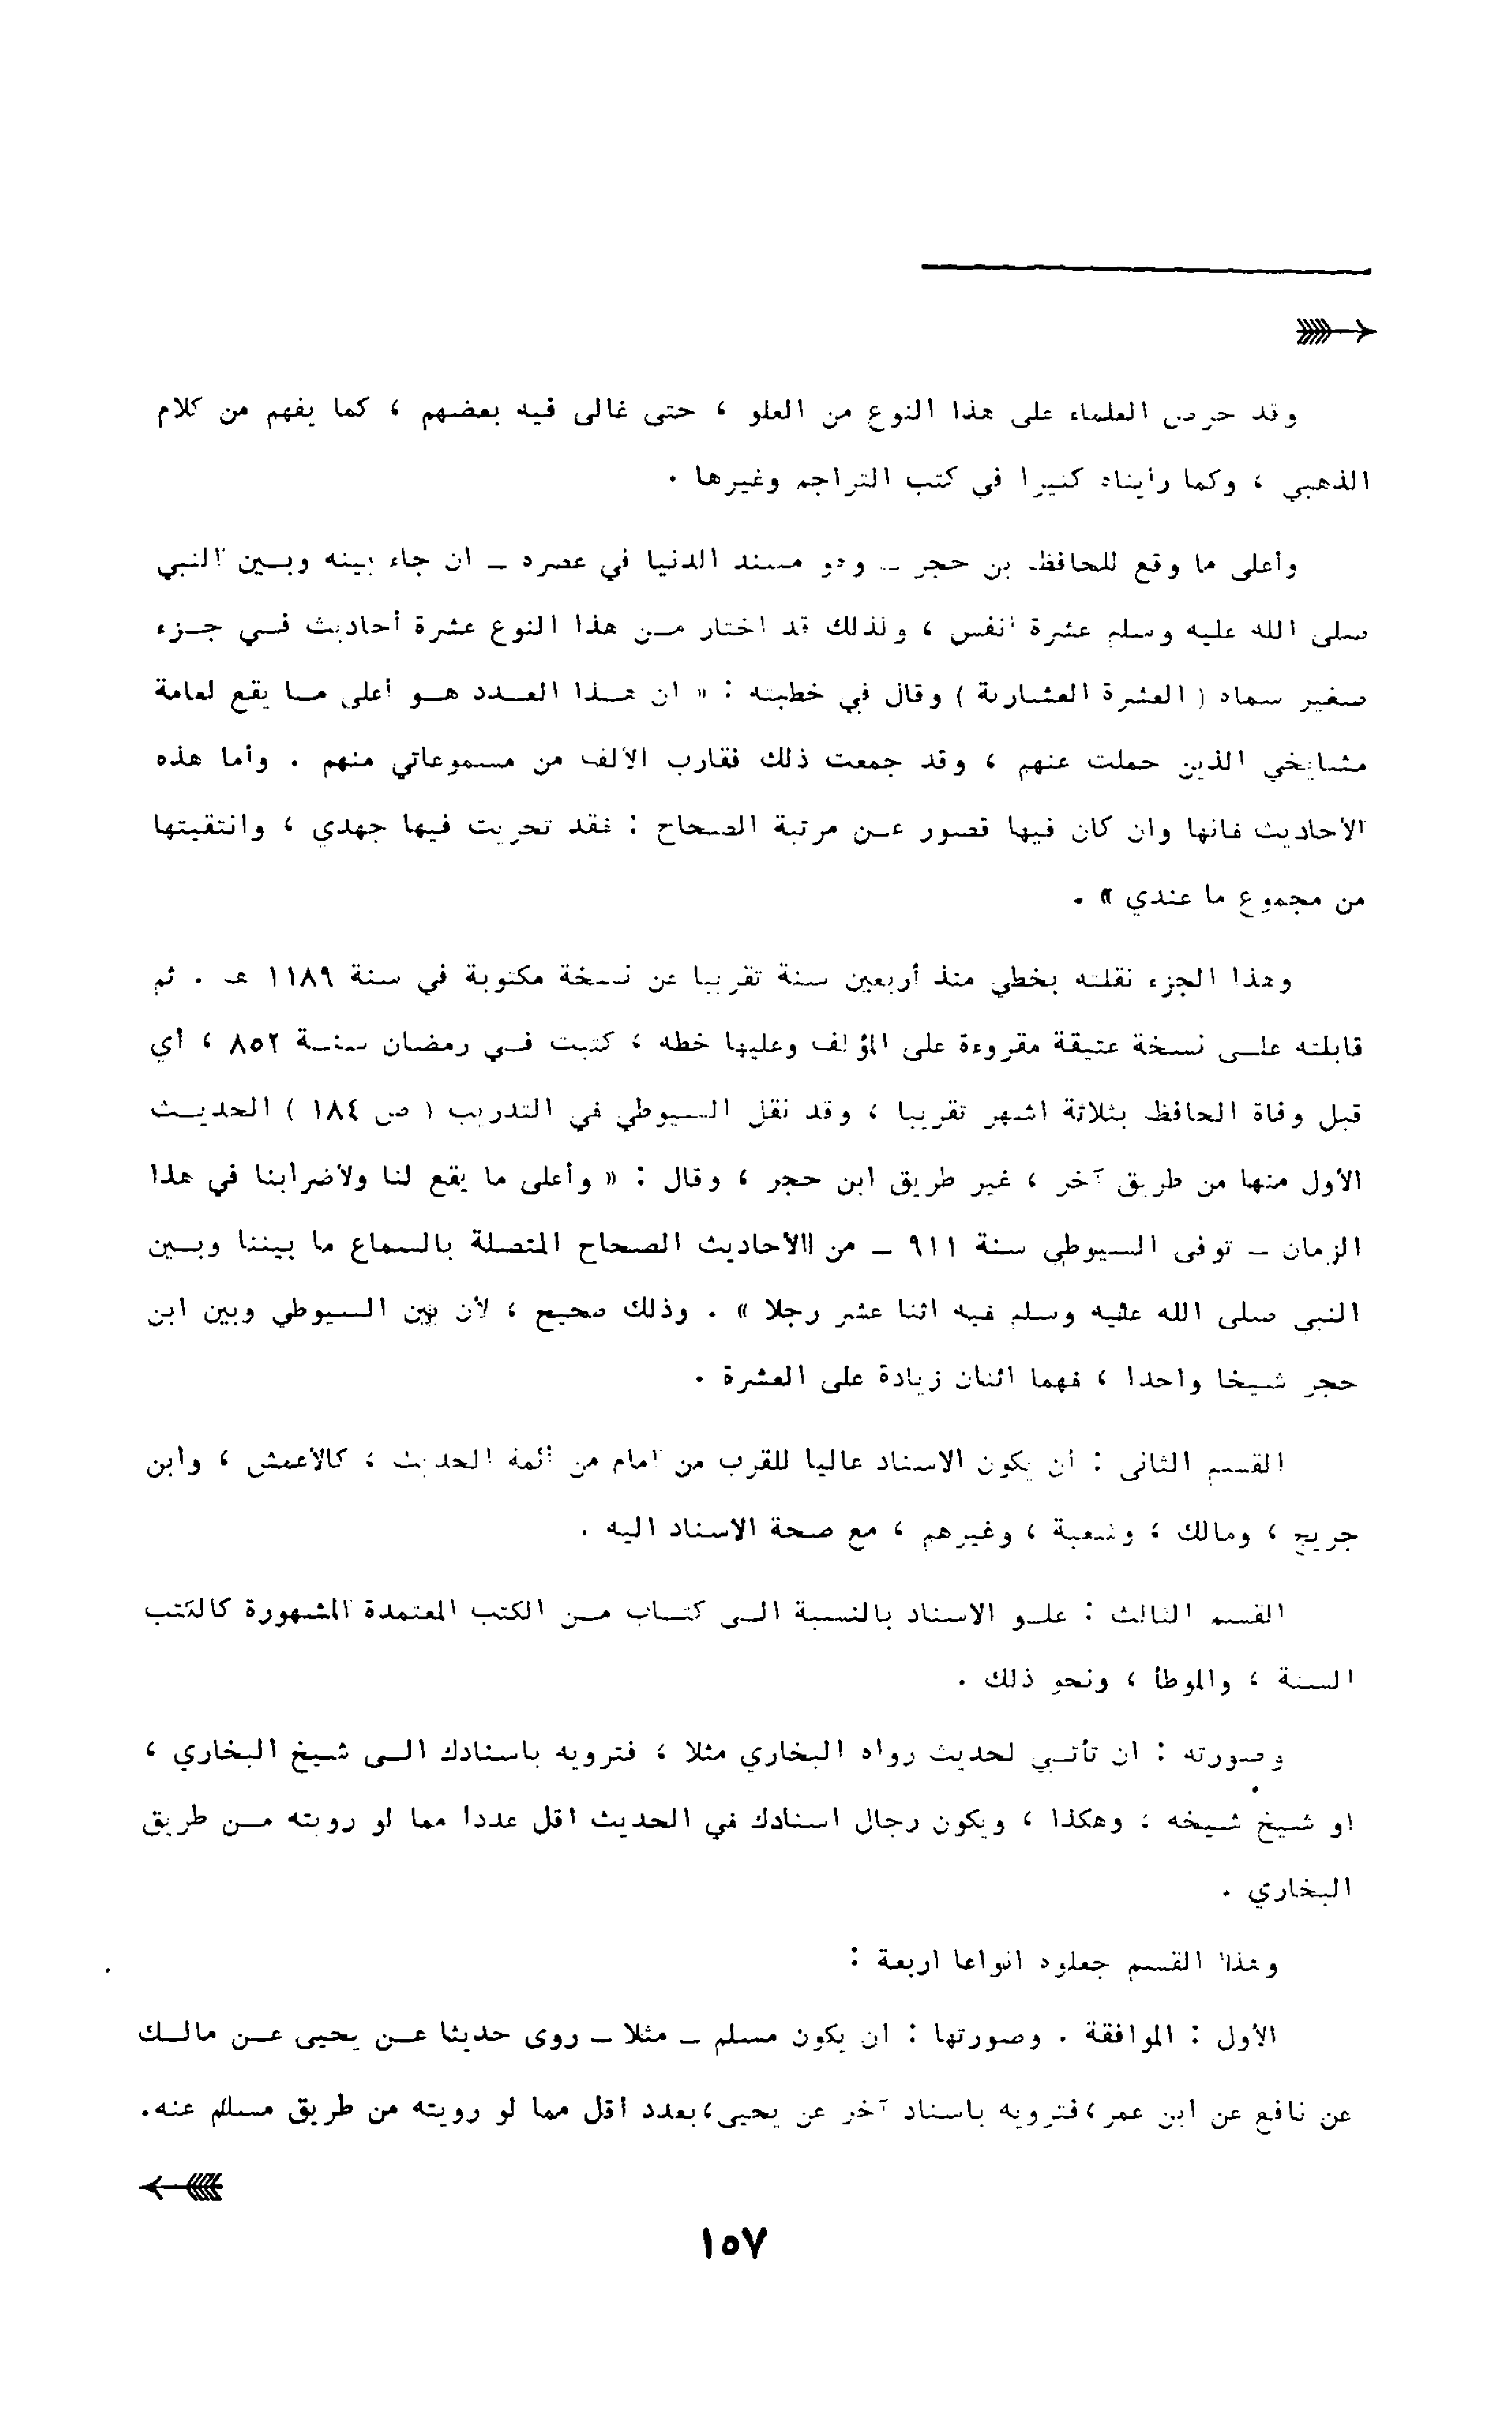 وقد حرص العلماء على هذا النوع من العلو ، حتى غالى فيه بعضهم ، كما يفهم من كلام
الذهبي ، وكما رأيناه كثيرا في كتب التراجم وغيرها .
وأعلى ما وقع للحافظ بن حجر - وهو مسند الدنيا في عصره - ان جاء بينه وبين النبي
صلى الله عليه وسلم عشرة أنفس ، ولذلك قد اختار من هذا النوع عشرة أحاديث في جزء
صغير سماه ( العشرة العشارية ) وقال في خطبته : « ان هذا العدد هو أعلى ما يقع لعامة
مشايخي الذين حملت عنهم ، وقد جمعت ذلك فقارب الألف من مسموعاتي منهم . وأما هذه
الأحاديث فانها وان كان فيها قصور عن مرتبة الصحاح : فقد تحريت فيها جهدي ، وانتقيتها
من مجموع ما عندي » .
وهذا الجزء نقلته بخطي منذ أربعين سنة تقريبا عن نسخة مكتوبة في سنة ١١٨٩ هـ . ثم
قابلته على نسخة عتيقة مقروءة على المؤلف وعليها خطه ، كتبت في رمضان سنة ٨٥٢ ، أي
قبل وفاة الحافظ بثلاثة اشهر تقريبا ، وقد نقل السيوطي في التدريب ( ص ١٨٤ ) الحديث
الأول منها من طريق آخر ، غير طريق ابن حجر ، وقال : « وأعلى ما يقع لنا ولأضرابنا في هذا
الزمان - توفى السيوطي سنة ٩١١ - من الأحاديث الصحاح المتصلة بالسماع ما بيننا وبين
النبى صلى الله عليه وسلم فيه اثنا عشر رجلا » . وذلك صحيح ، لأن بين السيوطي وبين ابن
حجر شيخا واحدا ، فهما اثنان زيادة على العشرة .
القسم الثانى : أن يكون الاسناد عاليا للقرب من امام من أئمة الحديث ، كالأعمش ، وابن
جريج ، ومالك ، وشعبة ، وغيرهم ، مع صحة الاسناد اليه .
القسم الثالث : علو الاسناد بالنسبة الى كتاب من الكتب المعتمدة المشهورة كالكتب
الستة ، والموطأ ، ونحو ذلك .
وصورته : ان تأتي لحديث رواه البخاري مثلا ، فترويه باسنادك الى شيخ البخاري ،
او شيخ شيخه ، وهكذا ، ويكون رجال اسنادك في الحديث اقل عددا مما لو رويته من طريق
البخاري .
وهذا القسم جعلوه انواعا اربعة :
الأول : الموافقة . وصورتها : ان يكون مسلم - مثلا - روى حديثا عن يحيى عن مالك
عن نافع عن ابن عمر ، فترويه باسناد آخر عن يحيى ، بعدد اقل مما لو رويته من طريق مسلم عنه .
١٥٧